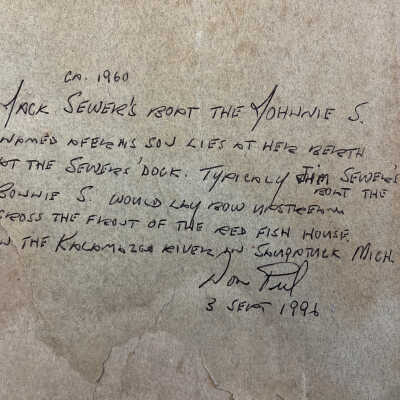 CA. 1960
JACK SEWER'S BOAT THE JOHNNIE S.
NAMED AFER HIS SON LIES AT HER BERTH
AT THE SEWERS' DOCK. TYPICALY JIM SEWER'S
BONNIE S. WOULD LAY BOW UPSTREAM BOAT THE
CROSS THE FRONT OF THE RED FISH HOUSE.
THE KALAMAZOO RIVER IN SAUGATUCK MICH.
Don
3 SEPT 1996